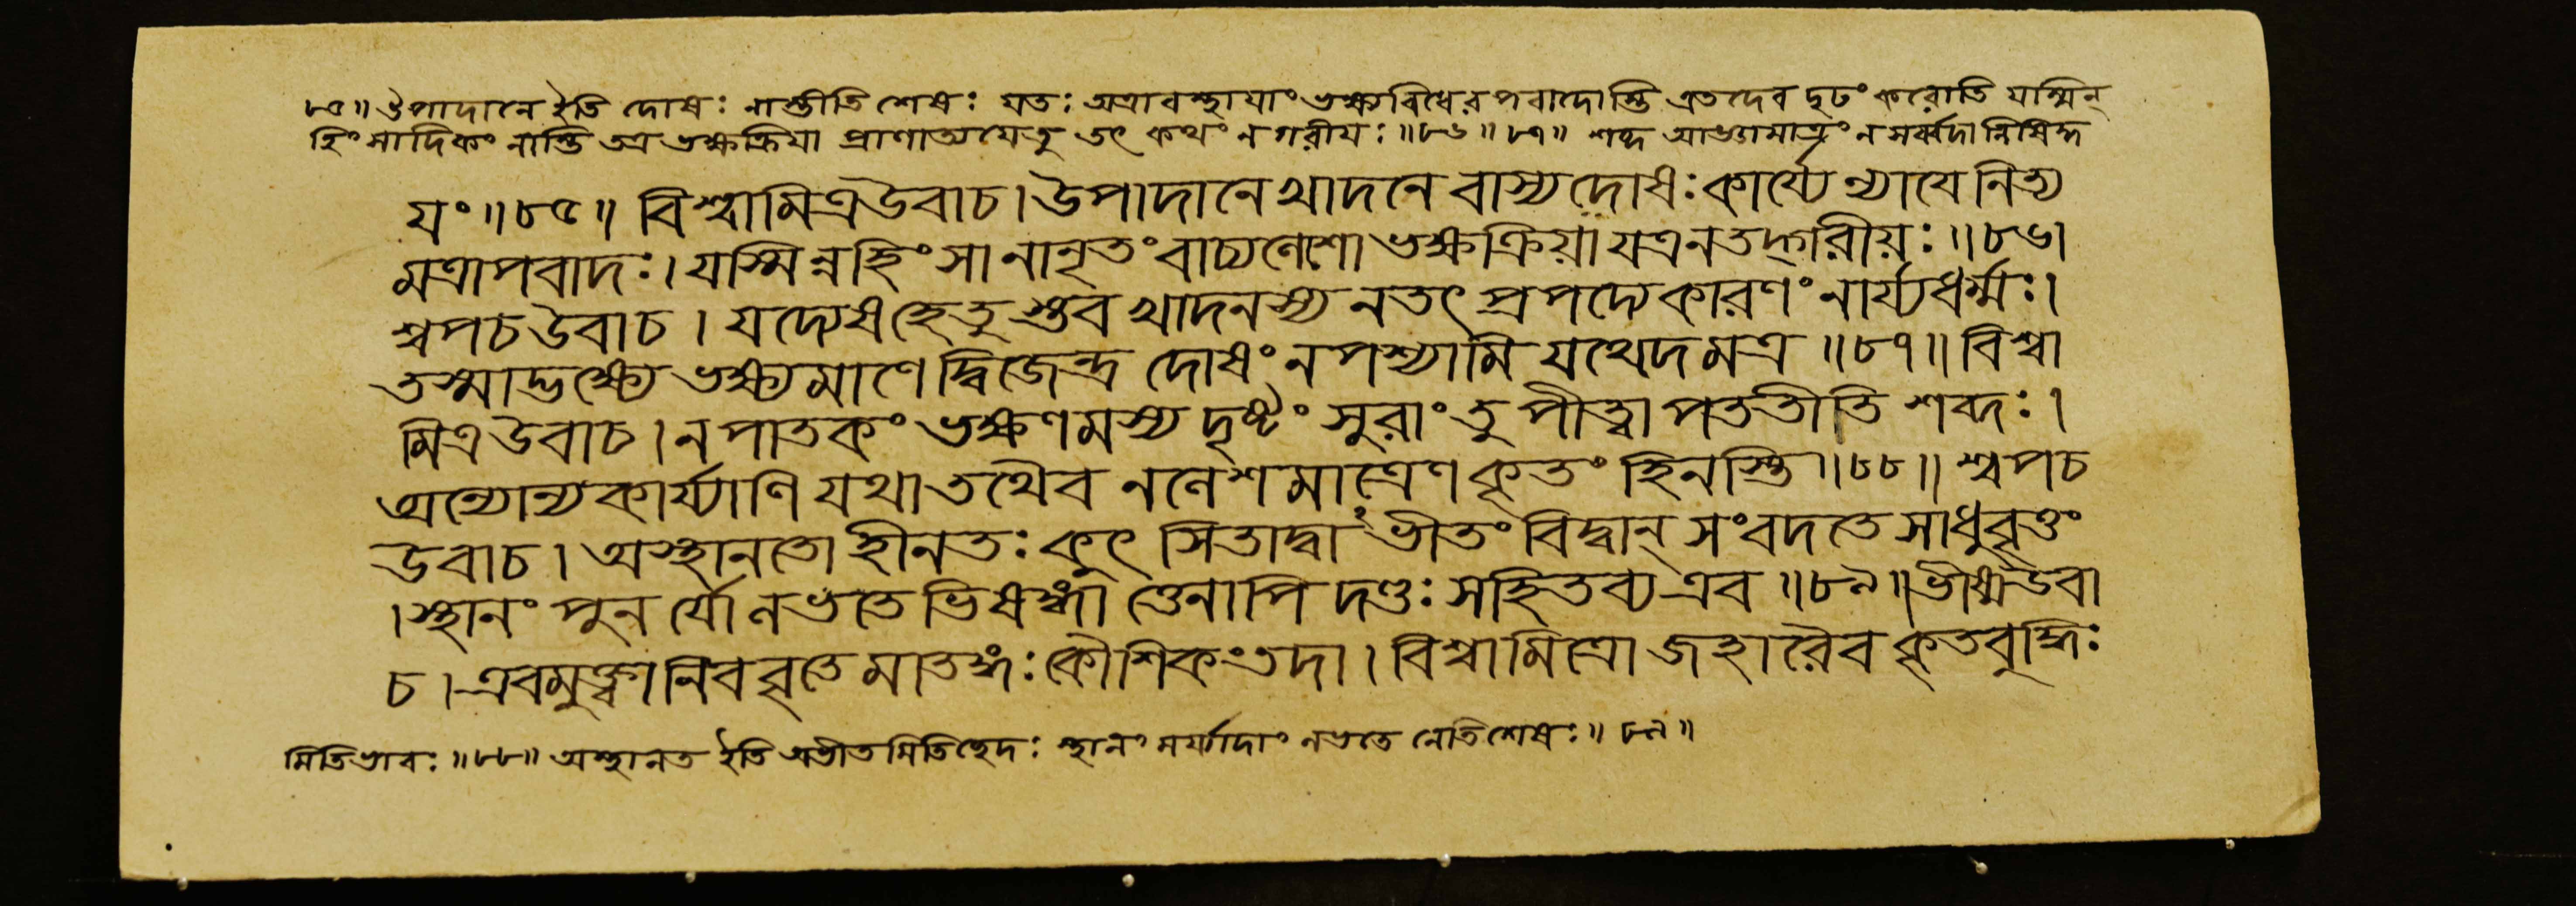 ৮৫॥ উপাদানে ইতি দোষঃ নাস্তীতি শেষঃ যতঃ অত্রাবস্থায়াং ভক্ষ্যবিধেরপবাদোস্তি এতদেব দৃঢং করোতি যস্মিন্
হিংসাদিকং নাস্তি তত্র ভক্ষক্রিয়া প্রাণাত্যয়েতু তৎ কথং ন গরীয়ঃ ॥৮৬॥ ৮৭॥ শব্দ আজ্ঞামাত্রং ন সর্ব্বদা নিষিদ্ধ
যং ॥৮৫॥ বিশ্বামিত্র উবাচ । উপাদানে খাদনে বাস্য দোষঃ কার্য্যে ন্যায়ে নিত্য
মত্রাপবাদঃ । যস্মিন্নহিংসা নানৃতং বাচ্যলেশো ভক্ষক্রিয়া যত্র নতদ্গরীয়ঃ ॥৮৬।
শ্বপচ উবাচ । যদ্যেষ হেতুস্তব খাদনস্য নতৎ প্রপদ্যে কারণং নার্য্যধর্ম্মঃ ।
তস্মাদ্ভক্ষ্যে ভক্ষ্যমাণে দ্বিজেন্দ্র দোষং ন পশ্যামি যথেদমত্র ॥৮৭॥ বিশ্বা
মিত্র উবাচ । ন পাতকং ভক্ষণমস্য দৃষ্টং সুরাং তু পীত্বা পততীতি শব্দঃ ।
অন্যোন্যকার্য্যাণি যথা তথৈব ন লেশমাত্রেণ কৃতং হিনস্তি ॥৮৮॥ শ্বপচ
উবাচ । অস্থানতো হীনতঃ কুৎসিতাদ্বা ভীতং বিদ্বান্ সংবদতে সাধুবৃত্তং
। স্থানং পুনর্যো লভতে ভিষঙ্গা ত্তেনাপি দণ্ডঃ সহিতব্য এব ॥৮৯॥ ভীষ্ম উবা
চ । এবমুক্ত্বা নিববৃতে মাতঙ্গঃ কৌশিকং তদা । বিশ্বামিত্রো জহারৈব কৃতবুদ্ধিঃ
মিতিভাবঃ ॥৮৮॥ অস্থানত ইতি অভীতমিতিছেদঃ স্থানং মর্য্যাদাং লভতে নেতিশেষঃ ॥ ৮৯॥